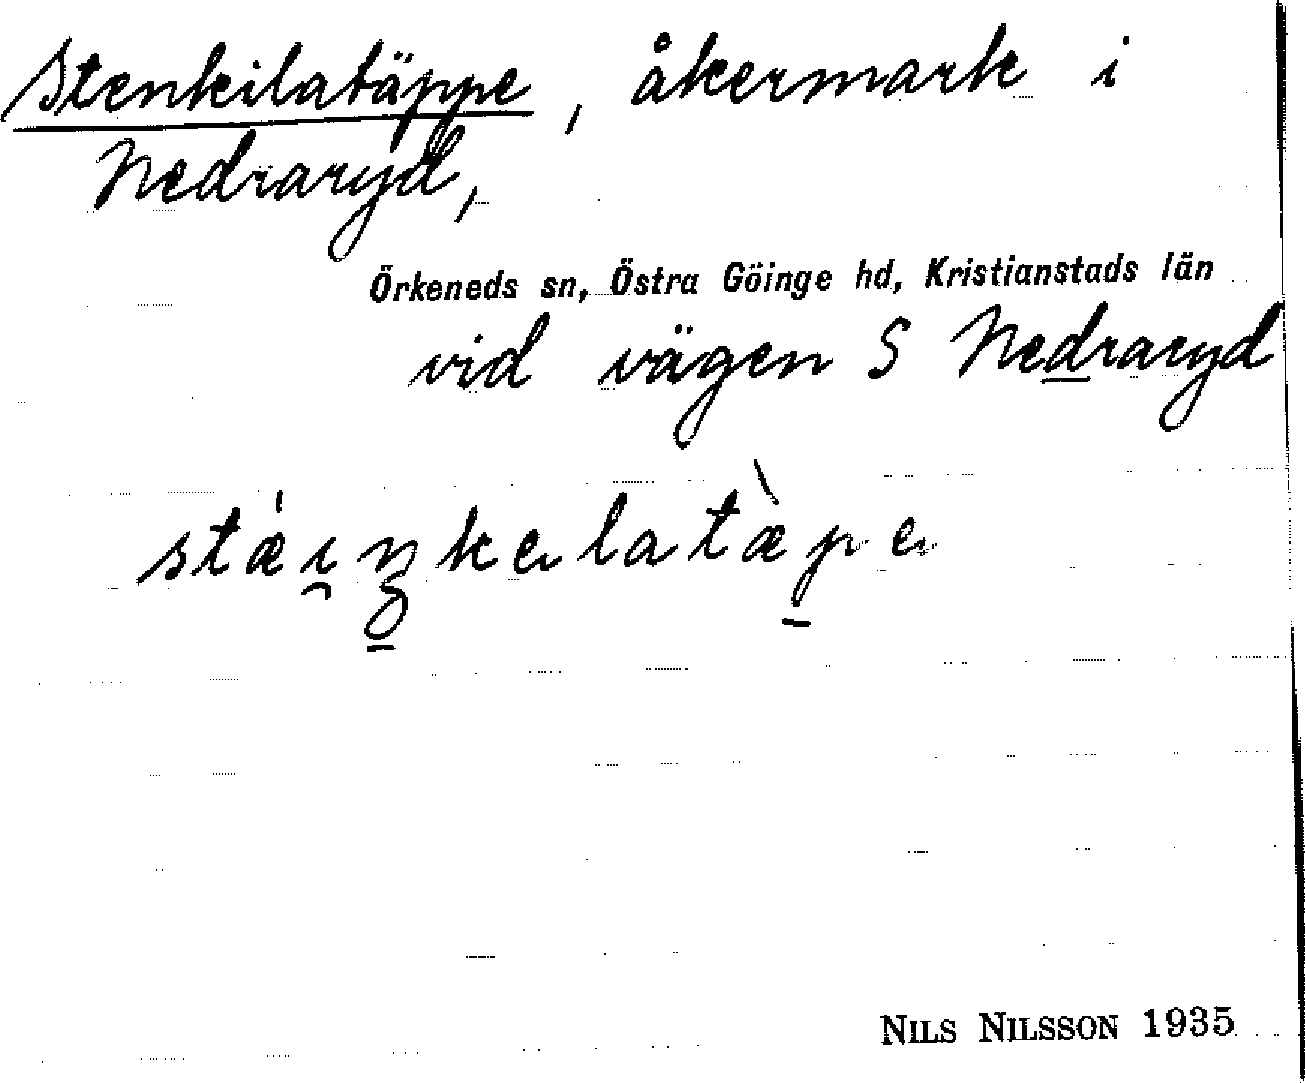 Stenkilatäppe, åkermark i
Nedraryd,
Örkeneds sn, Östra Göinge hd, Kristianstads län
vid vägen S Nedraryd
stǽı̯ŋ̱kəlatæ̀p̱ə
NILS NILSSON 1935